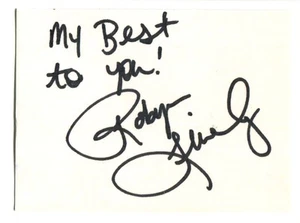 My Best
to you!
Robyn
Lively